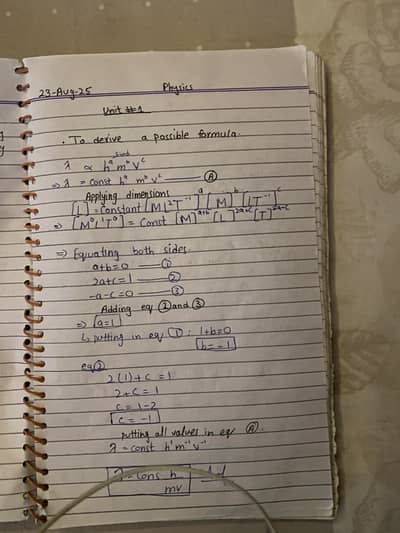 23-Aug-25 Physics
Unit #1
. To derive a possible formula.
λ ∝ hᵃ mᵇ vᶜ
⇒ λ = const hᵃ mᵇ vᶜ —— Ⓐ
Applying dimensions
[L] = Constant [ML²T⁻¹]ᵃ [M]ᵇ [LT⁻¹]ᶜ
⇒ [M⁰L¹T⁰] = Const [M]ᵃ⁺ᵇ [L]²ᵃ⁺ᶜ [T]⁻ᵃ⁻ᶜ
⇒ Equating both sides
a+b=0 —— ①
2a+c=1 —— ②
-a-c=0 —— ③
Adding eq ② and ③
⇒ a=1
↳ putting in eq ① : 1+b=0
b=-1
eq②
2(1)+c=1
2+c=1
c=1-2
c=-1
putting all values in eq Ⓐ.
λ = const h¹ m⁻¹ v⁻¹
λ = cons h
mv